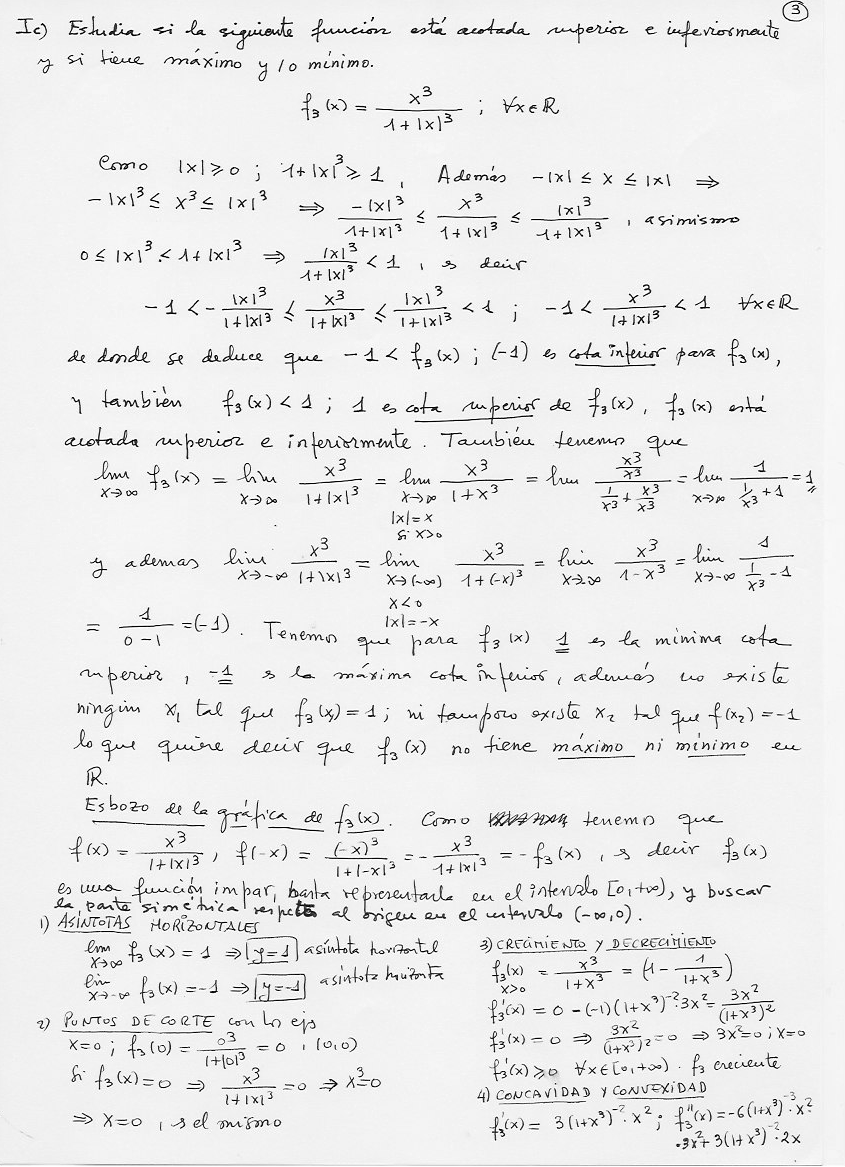 3
Ic) Estudia si la siguiente función está acotada superior e inferiormente
y si tiene máximo y/o mínimo.
f₃(x) = x³/(1+|x|³) ; ∀x∈ℝ
Como |x|⩾0 ; 1+|x|³⩾1, Además -|x| ≤ x ≤ |x| ⇒
-|x|³ ≤ x³ ≤ |x|³ ⇒ -|x|³/(1+|x|³) ≤ x³/(1+|x|³) ≤ |x|³/(1+|x|³), asimismo
0 ≤ |x|³ < 1+|x|³ ⇒ |x|³/(1+|x|³) < 1, es decir
-1 < -|x|³/(1+|x|³) ≤ x³/(1+|x|³) ≤ |x|³/(1+|x|³) < 1 ; -1 < x³/(1+|x|³) < 1 ∀x∈ℝ
de donde se deduce que -1 < f₃(x) ; (-1) es cota inferior para f₃(x),
y también f₃(x) < 1 ; 1 es cota superior de f₃(x), f₃(x) está
acotada superior e inferiormente. También tenemos que
lim x→∞ f₃(x) = lim x→∞ x³/(1+|x|³) = lim x→∞ x³/(1+x³) = lim (x³/x³)/(1/x³ + x³/x³) = lim x→∞ 1/(1/x³ + 1) = 1
|x|=x
si x>0
y ademas lim x→-∞ x³/(1+|x|³) = lim x→(-∞) x³/(1+(-x)³) = lim x→-∞ x³/(1-x³) = lim x→-∞ 1/(1/x³ - 1)
x<0
|x|=-x
= 1/(0-1) = (-1). Tenemos que para f₃(x) 1 es la mínima cota
superior, -1 es la máxima cota inferior, además no existe
ningún x₁ tal que f₃(x₁) = 1 ; ni tampoco existe x₂ tal que f(x₂) = -1
lo que quiere decir que f₃(x) no tiene máximo ni mínimo en
ℝ.
Esbozo de la gráfica de f₃(x). Como tenemos que
f(x) = x³/(1+|x|³), f(-x) = (-x)³/(1+|-x|³) = -x³/(1+|x|³) = -f₃(x), es decir f₃(x)
es una función impar, basta representarla en el intervalo [0,+∞), y buscar
la parte simétrica respecto al origen en el intervalo (-∞,0).
1) ASÍNTOTAS HORIZONTALES
lim x→∞ f₃(x) = 1 ⇒ y=1 asíntota horizontal
lim x→-∞ f₃(x) = -1 ⇒ y=-1 asíntota horizonta
2) PUNTOS DE CORTE con los ejes
x=0 ; f₃(0) = 0³/(1+|0|³) = 0, (0,0)
Si f₃(x)=0 ⇒ x³/(1+|x|³) = 0 ⇒ x³=0
⇒ x=0, es el mismo
3) CRECIMIENTO Y DECRECIMIENTO
f₃(x) x>0 = x³/(1+x³) = (1 - 1/(1+x³))
f₃'(x) = 0 - (-1)(1+x³)⁻²·3x² = 3x²/(1+x³)²
f₃'(x) = 0 ⇒ 3x²/(1+x³)² = 0 ⇒ 3x²=0 ; x=0
f₃'(x) ⩾ 0 ∀x∈[0,+∞). f₃ creciente
4) CONCAVIDAD Y CONVEXIDAD
f₃'(x) = 3(1+x³)⁻²·x² ; f₃''(x) = -6(1+x³)⁻³·x²·
·3x² + 3(1+x³)⁻²·2x